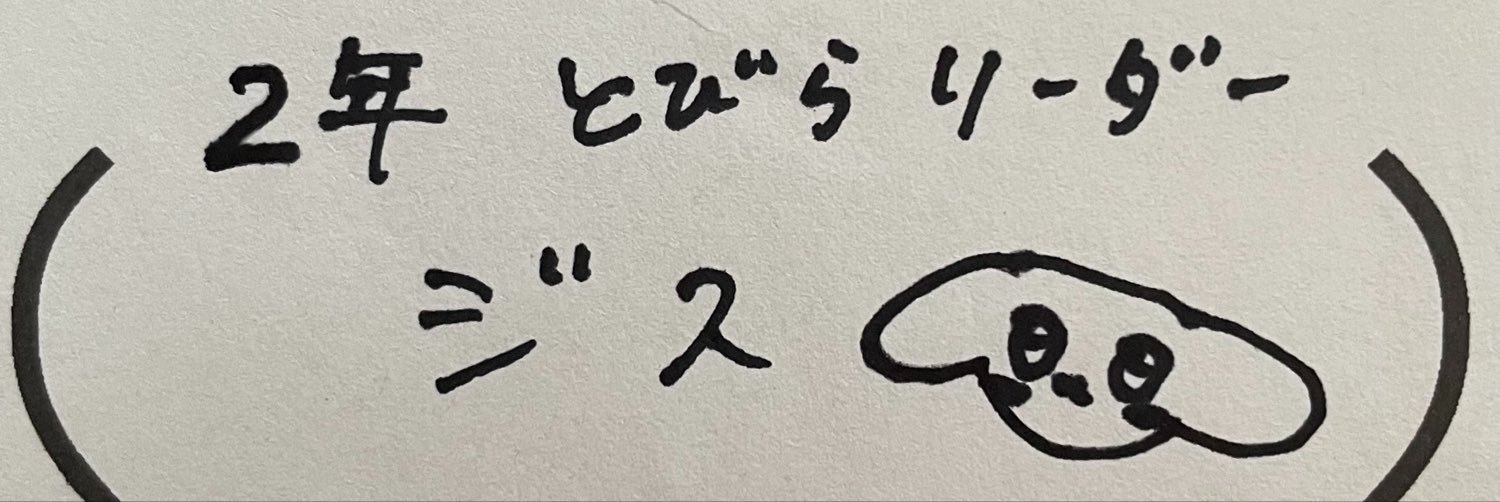 2年 とびら リーダー
ジス